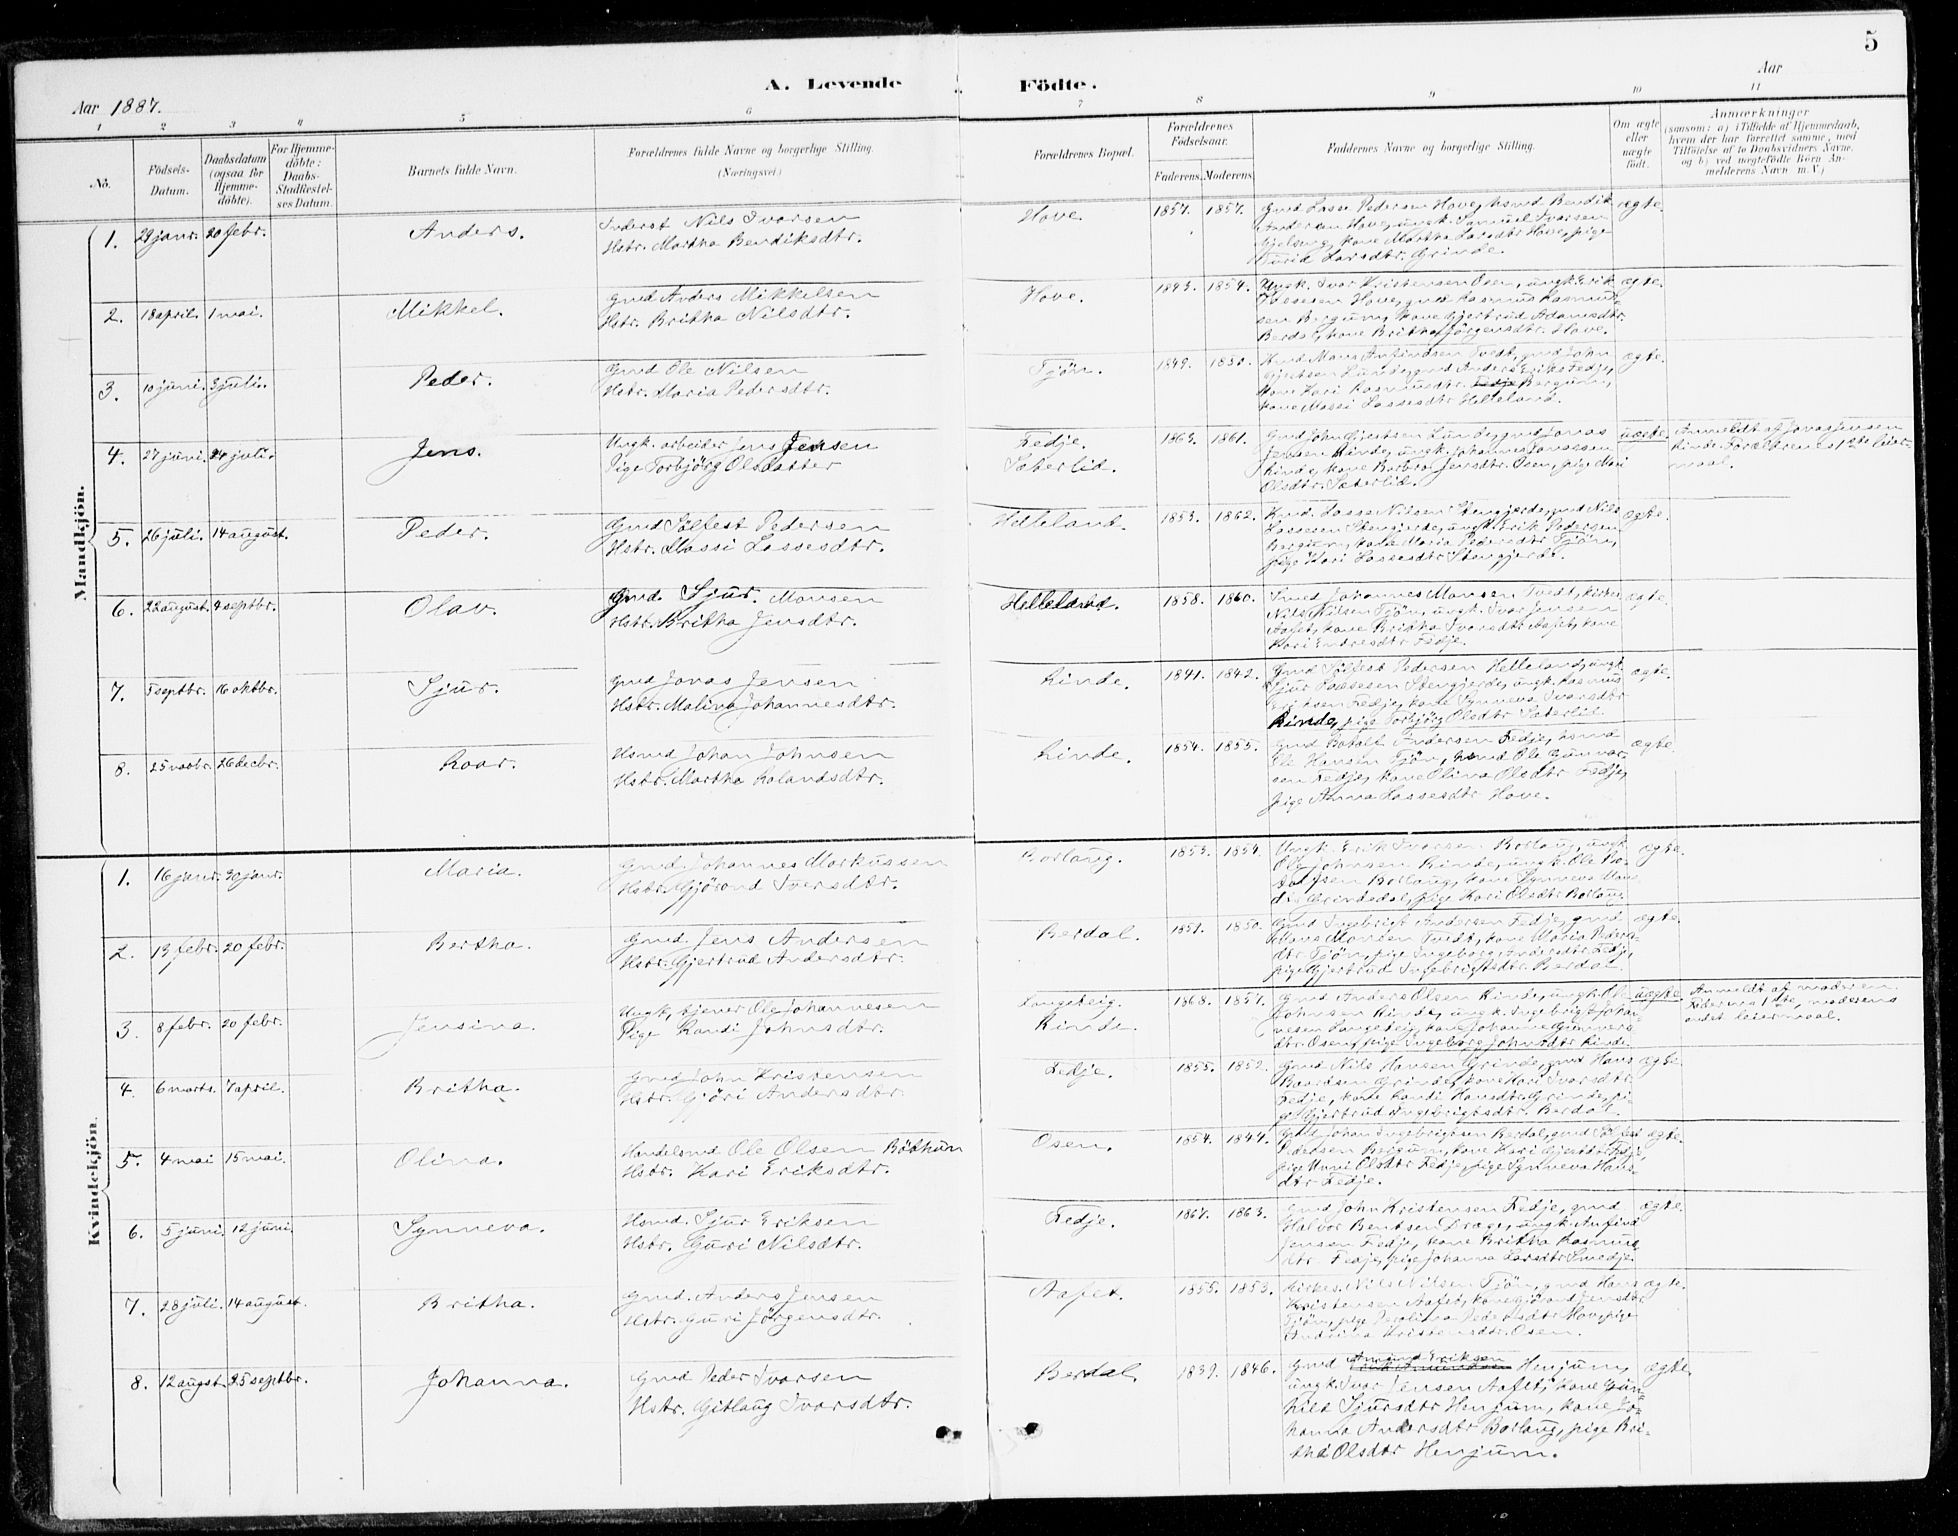 5
A. Levende Födte.
Aar 1887.
Aar
1 2 3 4 5 6 7 8 9 10 11
No.
Födsels-Datum.
Daabsdatum (ogsaa for Hjemme-döbte).
For Hjemme-döbte: Daabs-Stadfæstel-ses Datum.
Barnets fulde Navn.
Forældrenes fulde Navne og borgerlige Stilling. (Næringsvei)
Forældrenes Bopæl.
Forældrenes Födselsaar.
Faderens. Moderens.
Faddernes Navne og borgerlige Stilling.
Om ægte eller uægte födt.
Anmærkninger
(saasom: a) i Tilfælde af Hjemmedaab, hvem der har forrettet samme, med Tilföielse af to Daabsvidners Navne, og b) ved uægtefödte Börn Anmelderens Navn m. V.)
Mandkjön.
1. 29 janr. 20 febr. Anders.
Inderst Nils Ivarsen
Hstr. Martha Bendiksdtr.
Hove. 1857. 1857.
Gmd Lasse Pedersen Hove, Bendik
Andersen Hove, ungk. Samuel Ivarsen
kone Martha Larsdtr Hove, pige
Turid Larsdtr. Grinde
ægte.
2. 18 april. 1 mai. Mikkel.
Gmd Anders Mikkelsen
Hstr. Britha Nilsdtr.
Hove. 1843. 1854.
Ungk. Ivar Kristensen Osen, ungk. Erik
Lassesen Hove, gmd Rasmus Rasmus-
sen Bergum, kone Gjertrud Adamsdtr.
Berdal, kone Britha Jörgensdtr. Hove.
ægte.
3. 10 juni. 3 juli. Peder.
Gmd Ole Nilsen
Hstr. Maria Pedersdtr.
Tjön. 1849. 1850.
Hmd Mons Anfindsen Tvedt, gmd John
Gjertsen Lunde, gmd Anders Eriks Fedje,
kone Kari Rasmusdtr. Fedje Bergum,
kone Massi Lassesdtr Helleland.
ægte.
4. 27 juni. 24 juli. Jens.
Ungk. arbeider Jens Jensen
Pige Torbjörg Olsdatter
Fedje. Sæterlid. 1863. 1861.
Gmd John Gjertsen Lunde, gmd Jonas
Jensen Rinde, ungk. Johannes Jonsesen
Rinde, kone Barbra Jensdtr. Osen, pige Mari
Olsdtr. Sæterlid.
uægte.
Anmeldt af Jonas Jensen
Rinde. Forældrenes 1ste leier-
maal.
5. 26 juli. 14 august. Peder.
Gmd Sölfest Pedersen
Hstr. Massi Lassesdtr.
Helleland. 1853. 1862.
Hmd. Lasse Nilsen Stengjerde, gmd Nils
Lassesen Stengjerde, ungk. Erik Pedersen
Bergum, kone Maria Pedersdtr Tjön,
pige Kari Lassesdtr Stengjerde.
ægte.
6. 22 august. 4 septbr. Olav.
Gmd. Sjur. Monsen
Hstr. Britha Jensdtr.
Helleland. 1858. 1860.
Smed Johannes Monsen Tvedt, kirkes.
Nils Nilsen Tjön, ungk. Ivar Jensen
Aafet, kone Britha Ivarsdtr Aafet, kone
Kari Endresdtr Fedje.
ægte.
7. 5 septbr. 16 oktbr. Sjur.
Gmd Jonas Jensen
Hstr. Malina Johannesdtr.
Rinde. 1841. 1842.
Gmd Sölfest Pedersen Helleland, ungk.
Sjur Lassesen Stengjerde, ungk. Rasmus
Eriksen Fedje, kone Synneva Ivarsdtr
Rinde, pige Torbjörg Olsdtr Sæterlid
ægte.
8. 25 novbr. 26 decbr. Roar.
Hsmd Johan Johnsen
Hstr. Martha Rolandsdtr.
Rinde. 1854. 1855.
Gmd Botolf Andersen Fedje, hsmd
Ole Hansen Tjön, hsmd Ole Gunnar-
sen Fedje, kone Olina Olsdtr Fedje,
pige Anna Lassesdtr Hove.
ægte.
Kvindekjön.
1. 16 janr. 30 janr. Maria.
Gmd. Johannes Markussen
Hstr. Gjörond Iversdtr.
Borlaug. 1853. 1854.
Ungk. Erik Ivarsen Borlaug, ungk.
Ole Johnsen Rinde, ungk. Ole
Borlaug, kone Synneva Mons-
dtr. Grindedal, pige Kari Olsdtr Borlaug.
ægte.
2. 13 febr. 20 febr. Bertha.
Gmd. Jens Andersen
Hstr. Gjertrud Andersdtr.
Berdal. 1851. 1850.
Gmd Ingebrigt Andersen Fedje, gmd
Mons Monsen Tvedt, kone Maria Peders-
dtr Tjön, pige Ingeborg Andersdtr Fedje,
pige Gjertrud Ingebrigtsdtr. Berdal.
ægte.
3. 8 febr. 20 febr. Jensina.
Ungk, tjener Ole Johannesen
Pige Randi Johnsdtr.
Langeteig. Rinde. 1868. 1857.
Gmd Anders Olsen Rinde, ungk. Ole
Johnsen Rinde, ungk. Ingebrigt Johan-
nesen Langeteig, kone Johanna Gunnars-
dtr. Osen, pige Ingeborg Johnsdtr Rinde.
uægte.
Anmeldt af moderen.
Faderens 1ste, moderens
andet leiermaal.
4. 6 marts. 7 april. Britha.
Gmd John Kristensen
Hstr. Gjöri Andersdtr.
Fedje. 1855. 1852.
Gmd Nils Hansen Grinde, gmd Hans
Baardsen Grinde, kone Kari Ivarsdtr.
Fedje, kone Randi Hansdtr. Grinde, pi-
ge Gjertrud Ingebrigtsdtr. Berdal.
ægte.
5. 4 mai 15 mai. Olina.
Handelsmd Ole Olsen Böthun
Hstr. Kari Eriksdtr.
Osen. 1854. 1844.
Gmd Johan Ingebrigtsen Berdal, gmd Sölfest
Pedersen Bergum, kone Kari Gjertsdtr Fedje,
pige Unni Olsdtr Fedje, pige Synneva Hans-
dtr Fedje.
ægte.
6. 5 juni. 12 juni. Synneva.
Hsmd. Sjur Eriksen
Hstr. Guri Nilsdtr.
Fedje. 1867. 1863.
Gmd John Kristensen Fedje, gmd
Halvor Bentsen Dræge, ungk. Anfind
Jensen Fedje, kone Britha Rasmus-
dtr Fedje, pige Johanna Larsdtr Smedje
ægte.
7. 28 juli. 14 august. Britha.
Gmd. Anders Jensen
Hstr. Guri Jörgensdtr.
Aafet. 1855. 1853.
Kirkes. Nils Nilsen Tjön, gmd Hans
Kristensen Aafet, kone Gjörond Jensdtr
Tjön, pige Pedersdtr Hove, pige
Andrina Kristensdtr. Osen.
ægte.
8. 12 augst. 25 septbr. Johanna.
Gmd Peder Ivarsen
Hstr. Gitlaug Ivarsdtr.
Berdal. 1839. 1846.
Gmd Amund Eriksen Henjum,
ungk. Ivar Jensen Aafet, kone Gun-
hild Sjursdtr Henjum, kone Jo-
hanna Andersdtr Borlaug, pige Bri-
tha Olsdtr Henjum.
ægte.